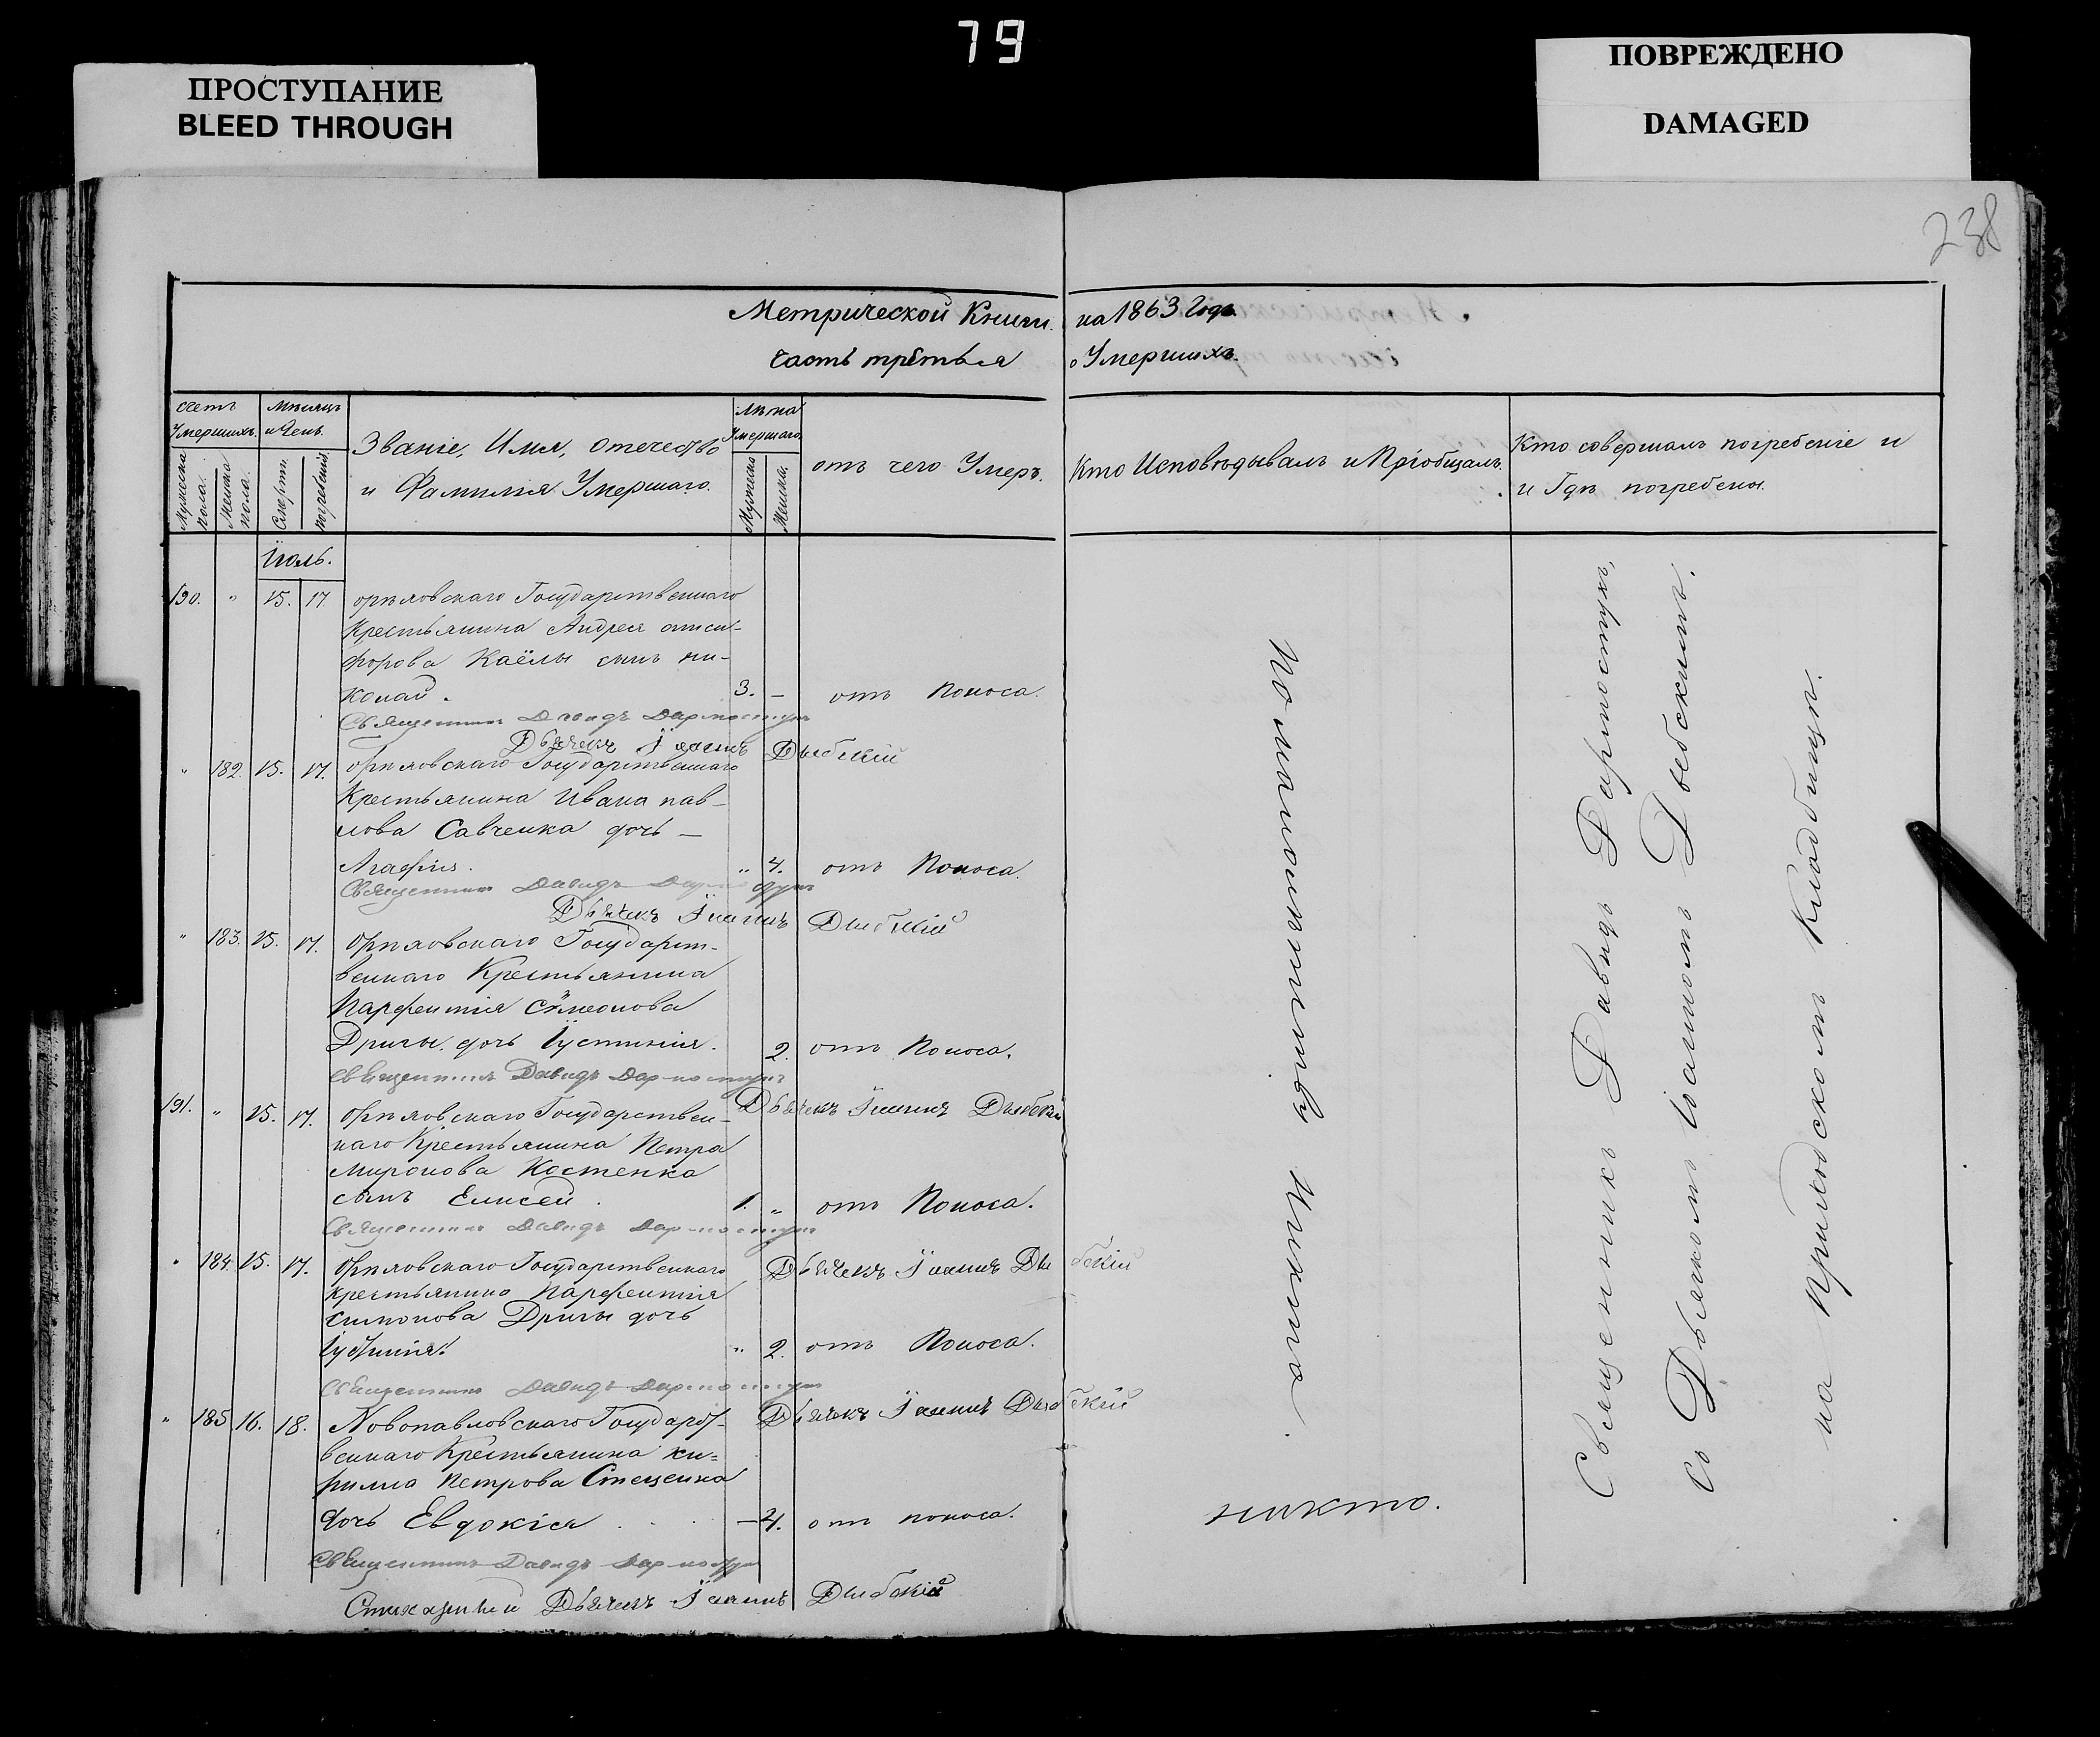 79
ПРОСТУПАНИЕ
BLEED THROUGH
ПОВРЕЖДЕНО
DAMAGED
238
Метрической Книги на 1863 Годъ
Часть третья о Умершихъ.
Счетъ Умершихъ.
Мужеска пола.
Женска пола.
Мѣсяцъ и День.
Смерти.
погребенія.
Званіе, Имя, Отечество
и Фамилія Умершаго.
лѣта Умершаго.
Мужеска
Женска.
отъ чего Умеръ.
Кто Исповѣдывалъ и Пріобщалъ.
Кто совершалъ погребеніе и
и Гдѣ погребены.
Іюль.
190. " 15. 17. орѣловскаго Государственнаго
Крестьянина Андрея ониси-
форова Каёлы сынъ ни-
колай. 3. — отъ Поноса.
Священникъ Давидъ Дармостукъ
Дьячекъ Іоаннъ Дыбскій
" 182. 15. 17. орѣловскаго Государственнаго
Крестьянина Ивана пав-
лова Савченка дочь —
Агафія. " 4. отъ Поноса.
Священникъ Давидъ
Дьячекъ Іоаннъ Дыбскій
" 183. 15. 17. Орѣловскаго Государст-
веннаго Крестьянина
Парфентія Сѵмеонова
Дриги. дочь Іустинія. 2. отъ Поноса.
Священникъ Давидъ Дармостукъ
Дьячекъ Іоаннъ Дыбскій
191. " 15. 17. Орѣловскаго Государствен-
наго Крестьянина Петра
Миронова Костенка
сынъ Елисей. 1. " отъ Поноса.
Священникъ Давидъ Дармостукъ
Дьячекъ Іоаннъ Дыбскій
" 184. 15. 17. Орѣловскаго Государственнаго
крестьянина Парфентія
симонова Дриги дочь
Іустинія. " 2. отъ Поноса.
Священникъ Давидъ Дармостукъ
Дьячекъ Іоаннъ Дыбскій
" 185 16. 18. Новопавловскаго Государст-
веннаго Крестьянина ки-
рилла Петрова Стеценка
дочь Евдокія — 4. отъ поноса.
Священникъ Давидъ Дармостукъ
Дьячекъ Іоаннъ Дыбскій
По малолетству Никто.
никто.
Священникъ Давидъ Дармостукъ,
со Дьячкомъ Іоанномъ Дыбскимъ.
на Приходскомъ Кладбищѣ.